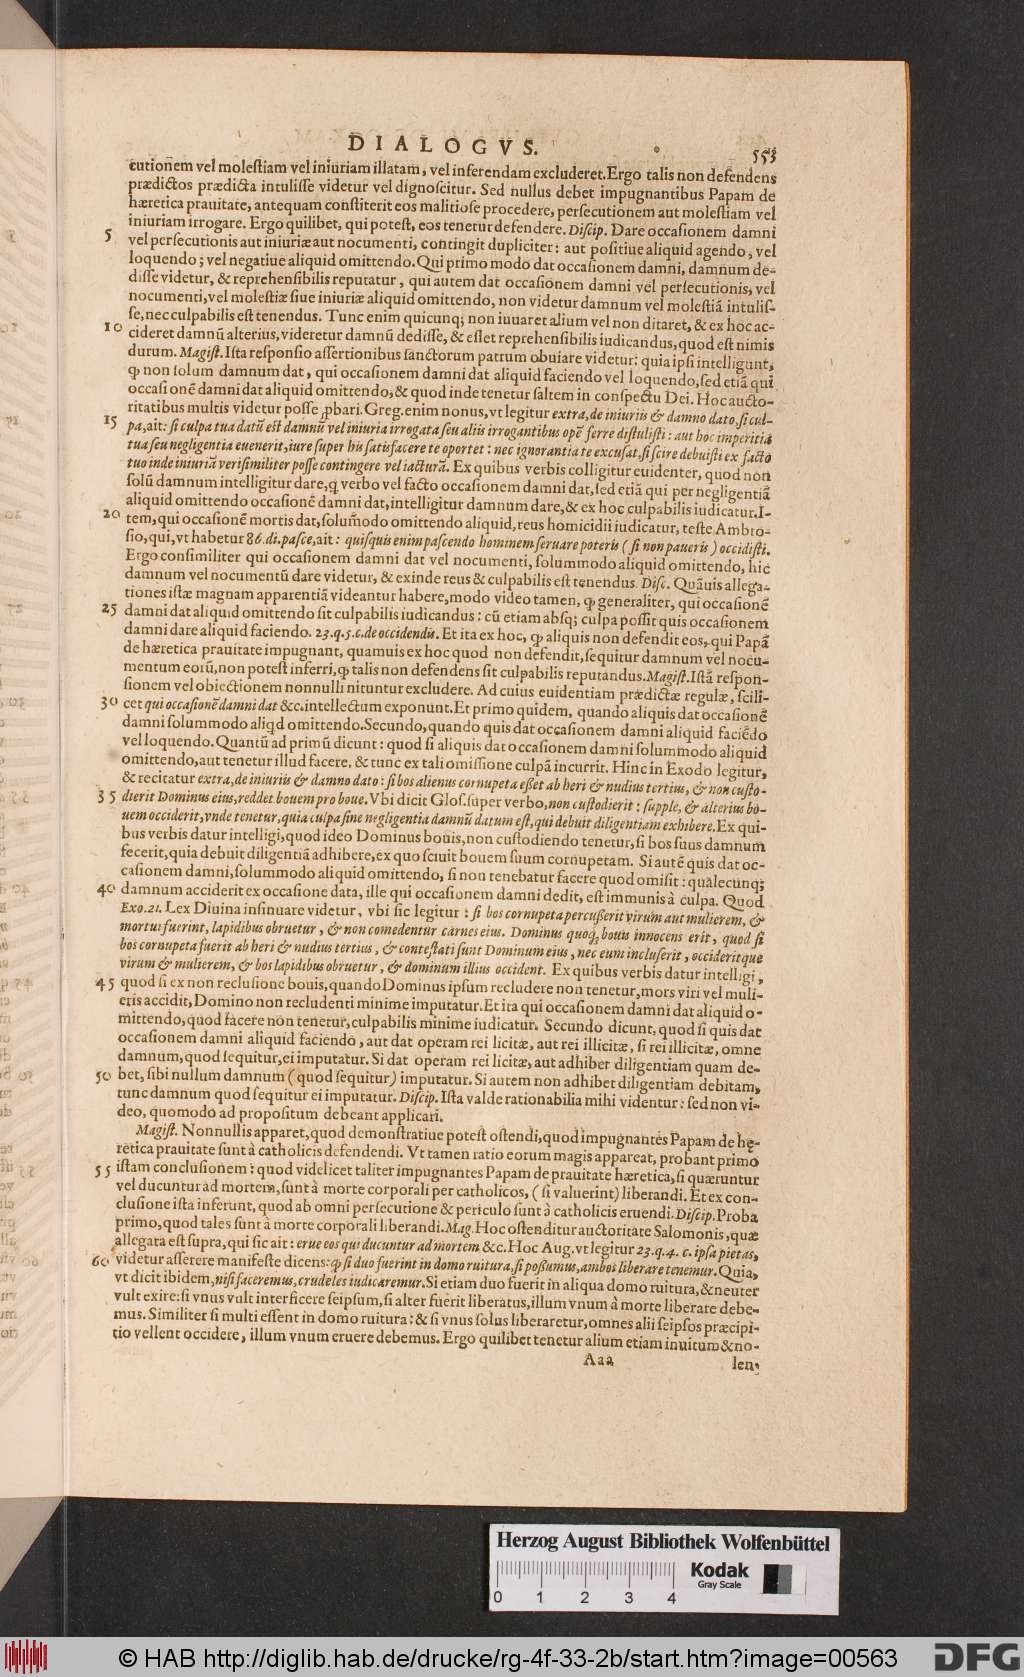 DIALOGVS. 553
cutionem vel molestiam vel iniuriam illatam, vel inferendam excluderet. Ergo talis non defendens
prædictos prædicta intulisse videtur vel dignoscitur. Sed nullus debet impugnantibus Papam de
hæretica prauitate, antequam constiterit eos malitiose procedere, persecutionem aut molestiam vel
iniuriam irrogare. Ergo quilibet, qui potest, eos tenetur defendere. Discip. Dare occasionem damni
5 vel persecutionis aut iniuriæ aut nocumenti, contingit dupliciter: aut positiue aliquid agendo, vel
loquendo; vel negatiue aliquid omittendo. Qui primo modo dat occasionem damni, damnum de-
disse videtur, & reprehensibilis reputatur, qui autem dat occasionem damni vel persecutionis, vel
nocumenti, vel molestiæ siue iniuriæ aliquid omittendo, non videtur damnum vel molestiã intulis-
se, nec culpabilis est tenendus. Tunc enim quicunq; non iuuaret alium vel non ditaret, & ex hoc ac-
10 cideret damnũ alterius, videretur damnũ dedisse, & esset reprehensibilis iudicandus, quod est nimis
durum. Magist. Ista responsio assertionibus sanctorum patrum obuiare videtur: quia ipsi intelligunt,
ꝙ non solum damnum dat, qui occasionem damni dat aliquid faciendo vel loquendo, sed etiã qui
occasionẽ damni dat aliquid omittendo, & quod inde tenetur saltem in conspectu Dei. Hoc aucto-
ritatibus multis videtur posse ꝓbari. Greg. enim nonus, vt legitur extra, de iniuriis & damno dato, si cul-
15 pa, ait: si culpa tua datũ est damnũ vel iniuria irrogata seu aliis irrogantibus opẽ ferre distulisti: aut hoc imperitia
tua seu negligentia euenerit, iure super his satisfacere te oportet: nec ignorantia te excusat, si scire debuisti ex facto
tuo inde iniuriã verisimiliter posse contingere vel iacturã. Ex quibus verbis colligitur euidenter, quod non
solũ damnum intelligitur dare, q verbo vel facto occasionem damni dat, sed etiã qui per negligentiã
aliquid omittendo occasionẽ damni dat, intelligitur damnum dare, & ex hoc culpabilis iudicatur. I-
20 tem, qui occasionẽ mortis dat, solummodo omittendo aliquid, reus homicidii iudicatur, teste Ambro-
sio, qui, vt habetur 86. di. pasce, ait: quisquis enim pascendo hominem seruare poteris (si non paueris) occidisti.
Ergo consimiliter qui occasionem damni dat vel nocumenti, solummodo aliquid omittendo, hic
damnum vel nocumentũ dare videtur, & exinde reus & culpabilis est tenendus. Disc. Quãuis allega-
tiones istæ magnam apparentiã videantur habere, modo video tamen, ꝙ generaliter, qui occasionẽ
25 damni dat aliquid omittendo sit culpabilis iudicandus: cũ etiam absq; culpa possit quis occasionem
damni dare aliquid faciendo. 23. q. 5. c. de occidendis. Et ita ex hoc, ꝙ aliquis non defendit eos, qui Papã
de hæretica prauitate impugnant, quamuis ex hoc quod non defendit, sequitur damnum vel nocu-
mentum eorũ, non potest inferri, ꝙ talis non defendens sit culpabilis reputandus. Magist. Istã respon-
sionem vel obiectionem nonnulli nituntur excludere. Ad cuius euidentiam prædictæ regulæ, scili-
30 cet qui occasionẽ damni dat &c. intellectum exponunt. Et primo quidem, quando aliquis dat occasionẽ
damni solummodo aliqd omittendo. Secundo, quando quis dat occasionem damni aliquid faciẽdo
vel loquendo. Quantũ ad primũ dicunt: quod si aliquis dat occasionem damni solummodo aliquid
omittendo, aut tenetur illud facere, & tunc ex tali omissione culpã incurrit. Hinc in Exodo legitur,
& recitatur extra, de iniuriis & damno dato: si bos alienus cornupeta esset ab heri & nudius tertius, & non custo-
35 dierit Dominus eius, reddet bouem pro boue. Vbi dicit Glos. super verbo, non custodierit: supple, & alterius bo-
uem occiderit, vnde tenetur, quia culpa sine negligentia damnũ datum est, qui debuit diligentiam exhibere. Ex qui-
bus verbis datur intelligi, quod ideo Dominus bouis, non custodiendo tenetur, si bos suus damnum
fecerit, quia debuit diligentiã adhibere, ex quo sciuit bouem suum cornupetam. Si autẽ quis dat oc-
casionem damni, solummodo aliquid omittendo, si non tenebatur facere quod omisit: qualecunq;
40 damnum acciderit ex occasione data, ille qui occasionem damni dedit, est immunis à culpa. Quod
Exo. 21. Lex Diuina insinuare videtur, vbi sic legitur: si bos cornupeta percusserit virum aut mulierem, &
mortui fuerint, lapidibus obruetur, & non comedentur carnes eius. Dominus quoq; bouis innocens erit, quod si
bos cornupeta fuerit ab heri & nudius tertius, & contestati sunt Dominum eius, nec eum incluserit, occideritque
virum & mulierem, & bos lapidibus obruetur, & dominum illius occident. Ex quibus verbis datur intelligi,
45 quod si ex non reclusione bouis, quando Dominus ipsum recludere non tenetur, mors viri vel muli-
eris accidit, Domino non recludenti minime imputatur. Et ita qui occasionem damni dat aliquid o-
mittendo, quod facere non tenetur, culpabilis minime iudicatur. Secundo dicunt, quod si quis dat
occasionem damni aliquid faciendo, aut dat operam rei licitæ, aut rei illicitæ, si rei illicitæ, omne
damnum, quod sequitur, ei imputatur. Si dat operam rei licitæ, aut adhiber diligentiam quam de-
50 bet, sibi nullum damnum (quod sequitur) imputatur. Si autem non adhibet diligentiam debitam,
tunc damnum quod sequitur ei imputatur. Discip. Ista valde rationabilia mihi videntur: sed non vi-
deo, quomodo ad propositum debeant applicari.
Magist. Nonnullis apparet, quod demonstratiue potest ostendi, quod impugnantes Papam de hę-
retica prauitate sunt à catholicis defendendi. Vt tamen ratio eorum magis appareat, probant primo
55 istam conclusionem: quod videlicet taliter impugnantes Papam de prauitate hæretica, si quæruntur
vel ducuntur ad mortem, sunt à morte corporali per catholicos, (si valuerint) liberandi. Et ex con-
clusione ista inferunt, quod ab omni persecutione & periculo sunt à catholicis eruendi. Discip. Proba
primo, quod tales sunt à morte corporali liberandi. Mag. Hoc ostenditur auctoritate Salomonis, quæ
allegata est supra, qui sic ait: erue eos qui ducuntur ad mortem &c. Hoc Aug. vt legitur 23. q. 4. c. ipsa pietas,
60 videtur asserere manifeste dicens: ꝙ si duo fuerint in domo ruitura, si possumus, ambos liberare tenemur. Quia,
vt dicit ibidem, nisi faceremus, crudeles iudicaremur. Si etiam duo fuerit in aliqua domo ruitura, & neuter
vult exire: si vnus vult interficere seipsum, si alter fuerit liberatus, illum vnum à morte liberare debe-
mus. Similiter si multi essent in domo ruitura: & si vnus solus liberaretur, omnes alii seipsos præcipi-
tio vellent occidere, illum vnum eruere debemus. Ergo quilibet tenetur alium etiam inuitum & no-
Aaa len-
Herzog August Bibliothek Wolfenbüttel
Kodak
Gray Scale
0 1 2 3 4
© HAB http://diglib.hab.de/drucke/rg-4f-33-2b/start.htm?image=00563
DFG